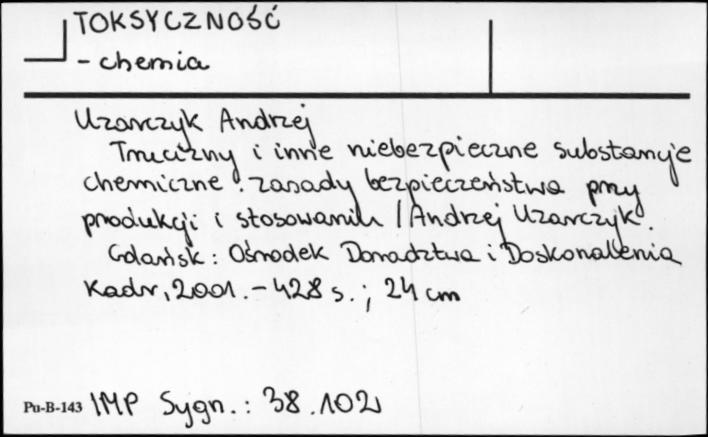 TOKSYCZNOŚĆ
- chemia
Uzarczyk Andrzej
Trucizny i inne niebezpieczne substancje
chemiczne : zasady bezpieczeństwa przy
produkcji i stosowaniu / Andrzej Uzarczyk
Gdańsk : Ośrodek Doradztwa i Doskonalenia
Kadr, 2001. - 428 s. ; 24 cm
Pu-B-143 IMP Sygn. : 38.102